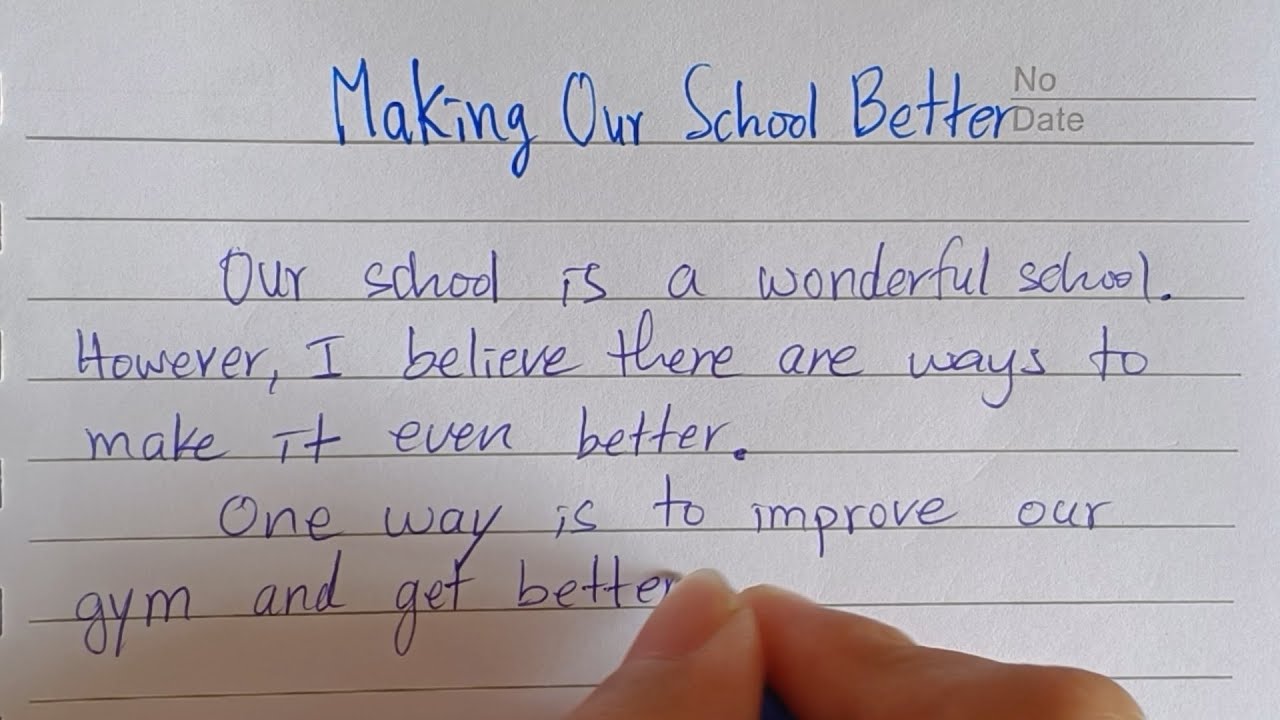 Making Our School Better
No
Date
Our school is a wonderful school.
However, I believe there are ways to
make it even better.
One way is to improve our
gym and get better